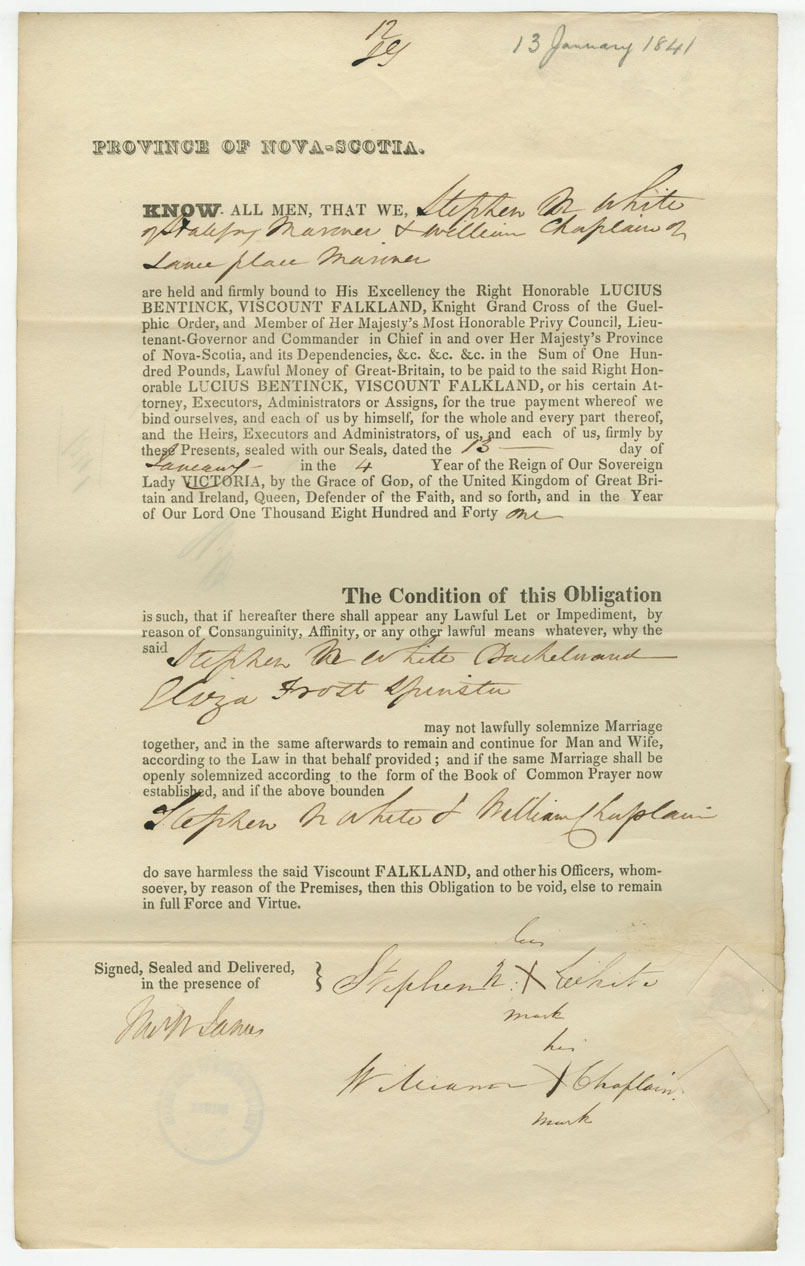 12
13 January 1841
PROVINCE OF NOVA-SCOTIA.
KNOW ALL MEN, THAT WE, Stephen N White
of Halifax Mariner & William Chaplain of
Same place Mariner
are held and firmly bound to His Excellency the Right Honorable LUCIUS
BENTINCK, VISCOUNT FALKLAND, Knight Grand Cross of the Guel-
phic Order, and Member of Her Majesty's Most Honorable Privy Council, Lieu-
tenant-Governor and Commander in Chief in and over Her Majesty's Province
of Nova-Scotia, and its Dependencies, &c. &c. &c. in the Sum of One Hun-
dred Pounds, Lawful Money of Great-Britain, to be paid to the said Right Hon-
orable LUCIUS BENTINCK, VISCOUNT FALKLAND, or his certain At-
torney, Executors, Administrators or Assigns, for the true payment whereof we
bind ourselves, and each of us by himself, for the whole and every part thereof,
and the Heirs, Executors and Administrators, of us, and each of us, firmly by
these Presents, sealed with our Seals, dated the 13 day of
January in the 4 Year of the Reign of Our Sovereign
Lady VICTORIA, by the Grace of GOD, of the United Kingdom of Great Bri-
tain and Ireland, Queen, Defender of the Faith, and so forth, and in the Year
of Our Lord One Thousand Eight Hundred and Forty one
The Condition of this Obligation
is such, that if hereafter there shall appear any Lawful Let or Impediment, by
reason of Consanguinity, Affinity, or any other lawful means whatever, why the
said Stephen N White Bachelor and
Eliza Frost Spinster
may not lawfully solemnize Marriage
together, and in the same afterwards to remain and continue for Man and Wife,
according to the Law in that behalf provided; and if the same Marriage shall be
openly solemnized according to the form of the Book of Common Prayer now
established, and if the above bounden
Stephen N White & William Chaplain
do save harmless the said Viscount FALKLAND, and other his Officers, whom-
soever, by reason of the Premises, then this Obligation to be void, else to remain
in full Force and Virtue.
Signed, Sealed and Delivered,
in the presence of
his
Stephen N. X White
mark
his
William X Chaplain.
mark